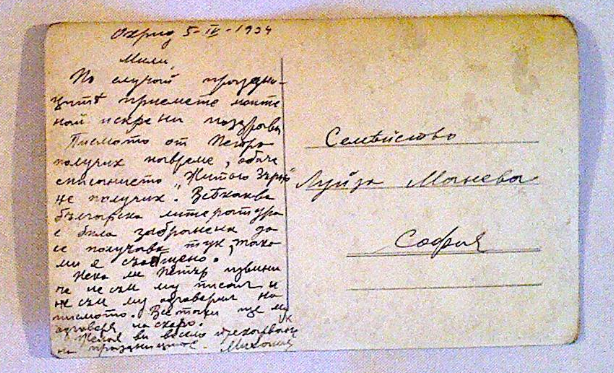 Охрид 5-IV-1934
Мили,
По случай праздни-
цитѣ приемете моите
най искрени поздрави
Писмото от Петра
получих навреме, обаче
списанието „Житно Зърно"
не получих. Всѣкаква
българска литература
е била забранена да
се получава тук, тъка
ми е съобщено.
Нека ме Петър извини
че не съм му писал и
не съм му одговорил на
писмото. Всетаки ще му
одговоря на скоро.
Желая ви весело
на праздницитѣ.
Семѣйство
Луйза Манева
София